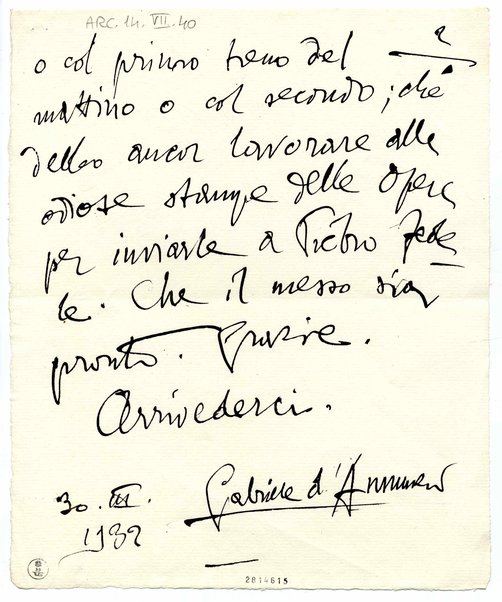 ARC. 14. VII. 40
2
o col primo treno del
mattino o col secondo; ché
debbo ancor lavorare alle
odiose stampe delle Opere
per inviarle a Pietro Fede
le. Che il messo sia
pronto. Grazie.
Arrivederci.
Gabriele d'Annunzio
30. III.
1932
2814615